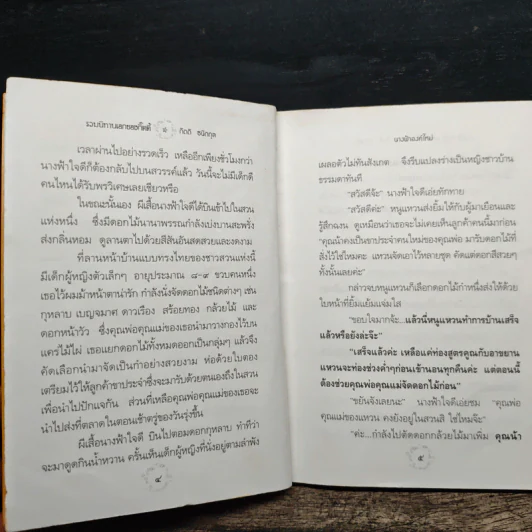 รวมนิทานเอกของกิ๊ดดี้ ๔ กิตติ ชนิกกุล
เวลาผ่านไปอย่างรวดเร็ว เหลืออีกเพียงชั่วโมงกว่า
นางฟ้าใจดีก็ต้องกลับไปบนสวรรค์แล้ว วันนี้จะไม่มีเด็กดี
คนไหนได้รับพรวิเศษเลยเชียวหรือ
ในขณะนั้นเอง ผีเสื้อนางฟ้าใจดีได้บินเข้าไปในสวน
แห่งหนึ่ง ซึ่งมีดอกไม้นานาพรรณกำลังเบ่งบานสะพรั่ง
ส่งกลิ่นหอม ดูลานตาไปด้วยสีสันอันสดสวยและงดงาม
ที่ลานหน้าบ้านแบบทรงไทยของชาวสวนแห่งนี้
มีเด็กผู้หญิงตัวเล็กๆ อายุประมาณ ๘-๙ ขวบคนหนึ่ง
เธอไว้ผมม้าหน้าตาน่ารัก กำลังนั่งจัดดอกไม้ชนิดต่างๆ เช่น
กุหลาบ เบญจมาศ ดาวเรือง สร้อยทอง กล้วยไม้ และ
ดอกหน้าวัว ซึ่งคุณพ่อคุณแม่ของเธอนำมาวางกองไว้บน
แคร่ไม้ไผ่ เธอแยกดอกไม้ทั้งหมดออกเป็นกลุ่มๆ แล้วจึง
คัดเลือกนำมาจัดเป็นกำอย่างสวยงาม ห่อด้วยใบตอง
เตรียมไว้ให้ลูกค้าขาประจำซึ่งจะมารับด้วยตนเองถึงในสวน
เพื่อนำไปปักแจกัน ส่วนที่เหลือคุณพ่อคุณแม่ของเธอจะ
นำไปส่งที่ตลาดในตอนเช้าตรู่ของวันรุ่งขึ้น
ผีเสื้อนางฟ้าใจดี บินไปตอมดอกกุหลาบ ทำทีว่า
จะมาดูดกินน้ำหวาน ครั้นเห็นเด็กผู้หญิงที่นั่งอยู่ตามลำพัง
๔
นางฟ้าองค์ใหม่
เผลอตัวไม่ทันสังเกต จึงรีบแปลงร่างเป็นหญิงชาวบ้าน
ธรรมดาทันที
"สวัสดีจ้ะ" นางฟ้าใจดีเอ่ยทักทาย
"สวัสดีค่ะ" หนูแหวนส่งยิ้มให้กับผู้มาเยือนและ
รู้สึกฉงน ดูเหมือนว่าเธอจะไม่เคยเห็นลูกค้าคนนี้มาก่อน
"คุณน้าคงเป็นขาประจำคนใหม่ของคุณพ่อ มารับดอกไม้ที่
สั่งไว้ใช่ไหมคะ แหวนจัดเอาไว้หลายชุด คัดแต่ดอกสีสวยๆ
ทั้งนั้นเลยค่ะ"
กล่าวจบหนูแหวนก็เลือกดอกไม้กำหนึ่งส่งให้ด้วย
ใบหน้าที่ยิ้มแย้มแจ่มใส
"ขอบใจมากจ้ะ...แล้วนี่หนูแหวนทำการบ้านเสร็จ
แล้วหรือยังล่ะจ๊ะ"
"เสร็จแล้วค่ะ เหลือแค่ท่องสูตรคูณกับอาขยาน
แหวนจะท่องช่วงค่ำๆก่อนเข้านอนทุกคืนค่ะ แต่ตอนนี้
ต้องช่วยคุณพ่อคุณแม่จัดดอกไม้ก่อน"
"ขยันจังเลยนะ" นางฟ้าใจดีเอ่ยชม "คุณพ่อ
คุณแม่ของแหวน คงยังอยู่ในสวนสิ ใช่ไหมจ๊ะ"
"ค่ะ...กำลังไปตัดดอกกล้วยไม้มาเพิ่ม คุณน้า
๕